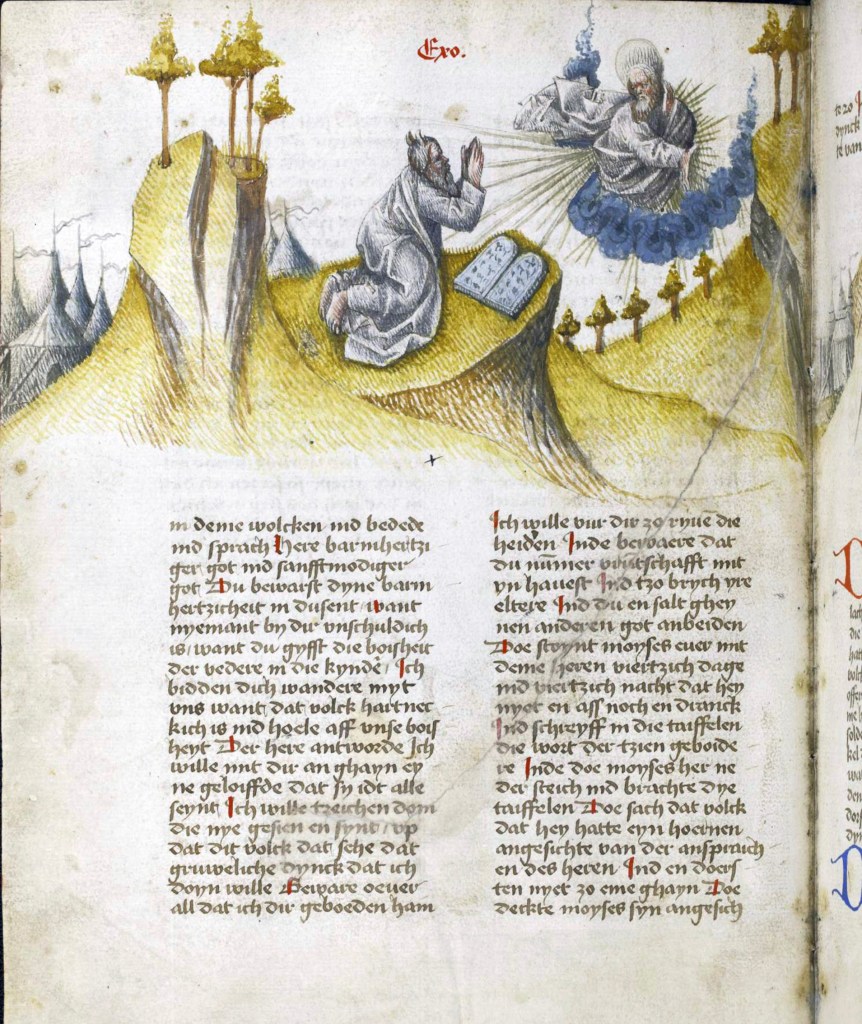 Exo.
in deme wolcken ind bedede
ind sprach Here barmhertzi
ger got ind sanfftmodiger
got Du bewarst dyne barm
hertzicheit in dusent want
nyemant by dir vnschuldich
is want du gyfft die boisheit
der vedere in die kynde Ich
bidden dich wandere myt
vns want dat volck hartnec
kich is ind hoele aff vnse bois
heyt Der here antworde Ich
wille mit dir an ghayn ey
ne geloiffde dat sy idt alle
seynt Ich wille tzeichen doin
die nye gesien en synt vp
dat dit volck dat sehe dat
gruweliche dynck dat ich
doyn wille Beware oeuer
all dat ich dir geboeden ham
Ich wille vur dir zo ryuē die
heiden Inde bewaere dat
du nūmer vrūtschafft mit
yn hauest Ind tzo brych yre
eltere Ind du en salt ghey
nen anderen got anbeiden
Doe stoynt moyses euer mit
deme heren viertzich dage
ind viertzich nacht dat hey
nyet en ass noch en dranck
Ind schreyff in die taiffelen
die wort der tzien geboide
re Inde doe moyses her ne
der steich ind brachte dye
taiffelen Doe sach dat volck
dat hey hatte eyn hoernen
angesichte van der anspraich
en des heren Ind en doers
ten nyet zo eme ghayn Doe
deckte moyses syn angesich
te zo
dynck
te van